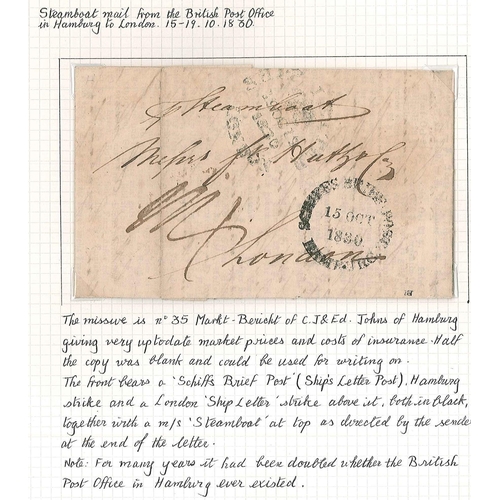 Steamboat mail from the British Post Office
in Hamburg to London. 15-19.10.1830.
p Steamboat
Messrs Fk Huth & Co
London
SCHIFFS BRIEF POST
15 OCT
1830
HAMBURG
The missive is nº 35 Markt-Bericht of C.J & Ed. Johns of Hamburg
giving very uptodate market prices and costs of insurance. Half
the copy was blank and could be used for writing on.
The front bears a 'Schiffs Brief Post' (Ships Letter Post), Hamburg
strike and a London 'Ship Letter' strike above it, both in black,
together with a m/s 'Steamboat' at top as directed by the sende
at the end of the letter.
Note: For many years it had been doubled whether the British
Post Office in Hamburg ever existed.